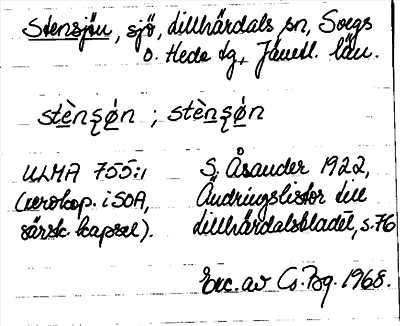 Stensjön, sjö, Lillhärdals sn, Svegs
o. Hede tg, Jämtl. län.
stènʂǿn ; stènʂǿn
ULMA 755:1
(xerokop. i SOA,
särsk. kapsel).
S. Åsander 1922,
Ändringslistor till
Lillhärdalsbladet, s. 76
Exc. av Cs. Bg. 1968.